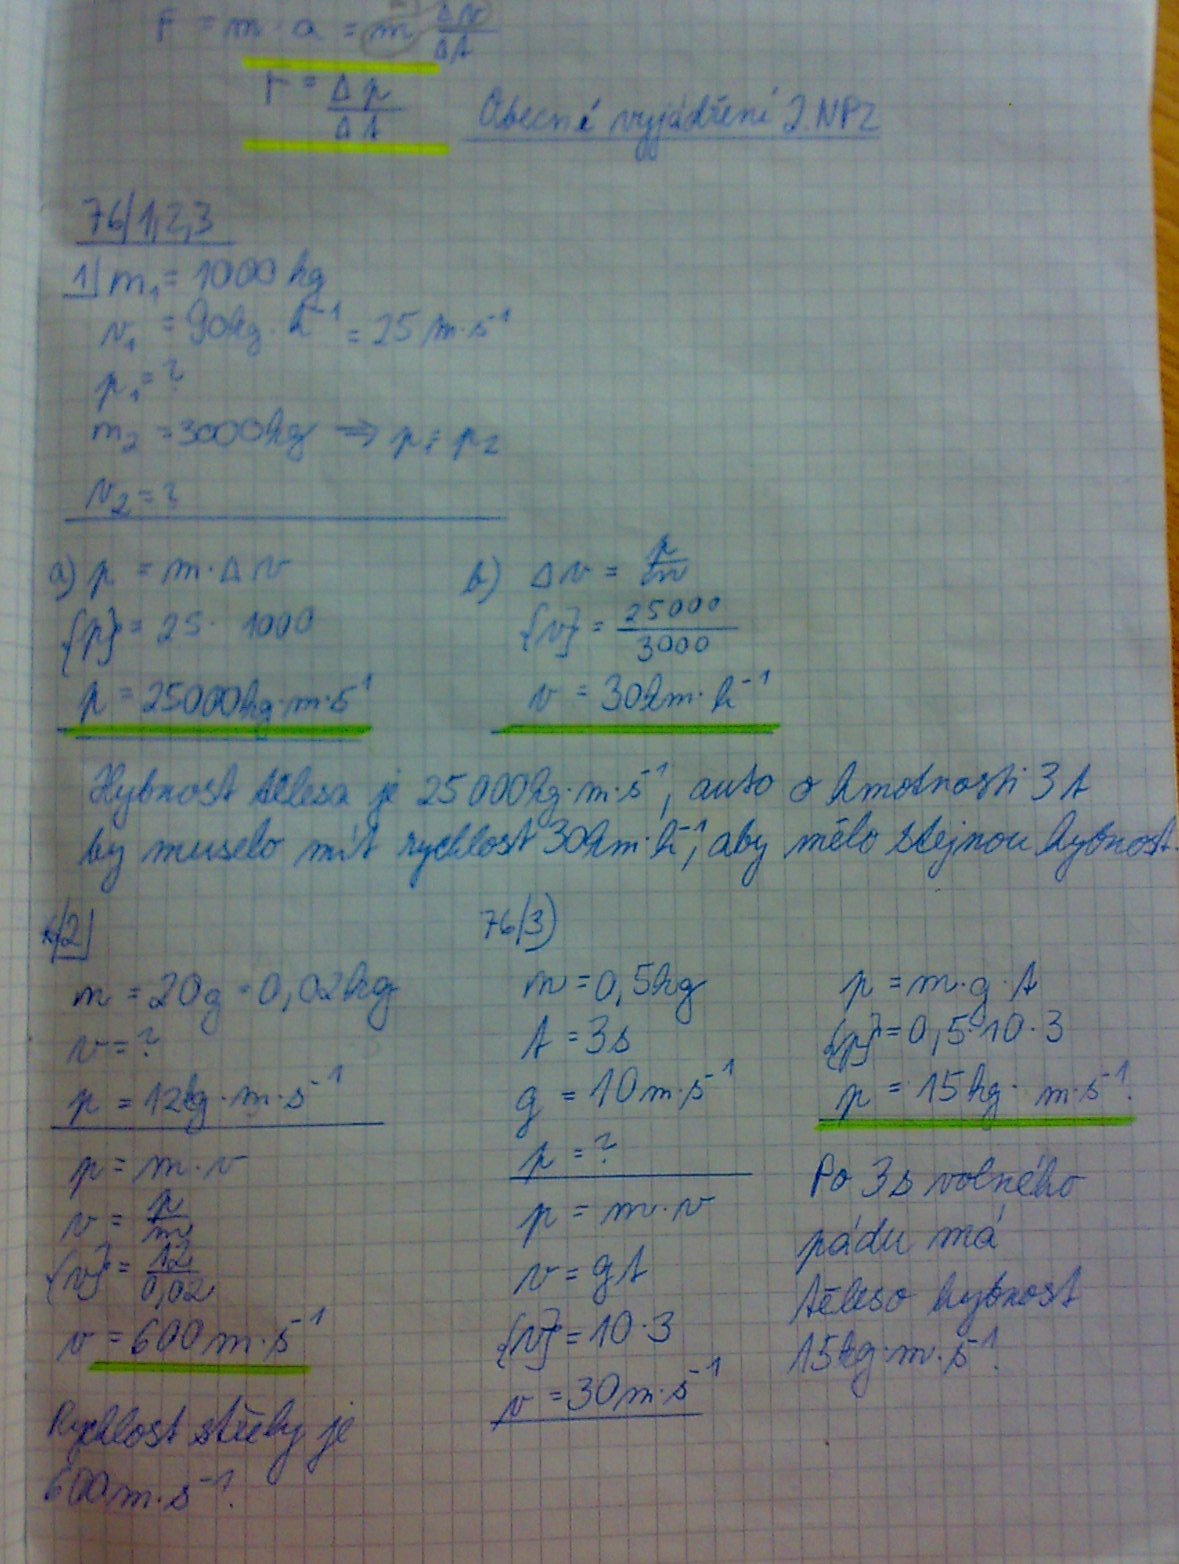 F = m · a = m Δv/Δt
F = Δp/Δt
Obecné vyjádření 2. NPZ
76/1,2,3
1) m₁ = 1000 kg
v₁ = 90kg · h⁻¹ = 25 m·s⁻¹
p₁ = ?
m₂ = 3000kg ⇒ p₁ = p₂
v₂ = ?
a) p = m · Δv
{p} = 25 · 1000
p = 25000kg·m·s⁻¹
b) Δv = p/m
{v} = 25000/3000
v = 30km·h⁻¹
Hybnost tělesa je 25 000kg·m·s⁻¹, auto o hmotnosti 3t
by muselo mít rychlost 30km·h⁻¹, aby mělo stejnou hybnost.
2)
m = 20g = 0,02kg
v = ?
p = 12kg·m·s⁻¹
p = m·v
v = p/m
{v} = 12/0,02
v = 600m·s⁻¹
Rychlost střely je
600m·s⁻¹.
76/3)
m = 0,5kg
t = 3s
g = 10m·s⁻¹
p = ?
p = m·v
v = gt
{v} = 10·3
v = 30m·s⁻¹
p = m·g·t
{p} = 0,5·10·3
p = 15kg·m·s⁻¹.
Po 3s volného
pádu má
těleso hybnost
15kg·m·s⁻¹.